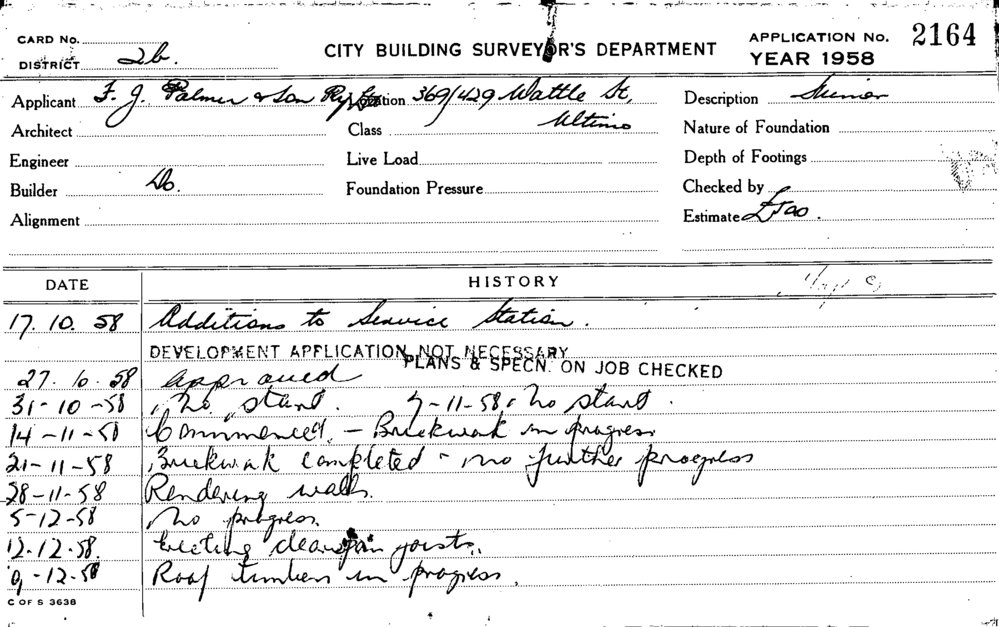 CARD No.
DISTRICT 2b.
CITY BUILDING SURVEYOR'S DEPARTMENT
APPLICATION No. 2164
YEAR 1958
Applicant F. J. Palmer & Son Pty Location 369/429 Wattle St, Ultimo
Description
Architect
Class
Nature of Foundation
Engineer
Live Load
Depth of Footings
Builder Do.
Foundation Pressure
Checked by
Alignment
Estimate
DATE HISTORY
17.10.58 Additions to Service Station.
DEVELOPMENT APPLICATION NOT NECESSARY
PLANS & SPECN. ON JOB CHECKED
27.10.58 approved
31-10-58 No start. 7-11-58, No start.
14-11-58 Commenced. - Brickwork in progress
21-11-58 Brickwork completed - no further progress
28-11-58 Rendering walls.
5-12-58 No progress.
12.12.58. Erecting clearspan joists.
9-12-58 Roof timbers in progress.
C OF S 3638